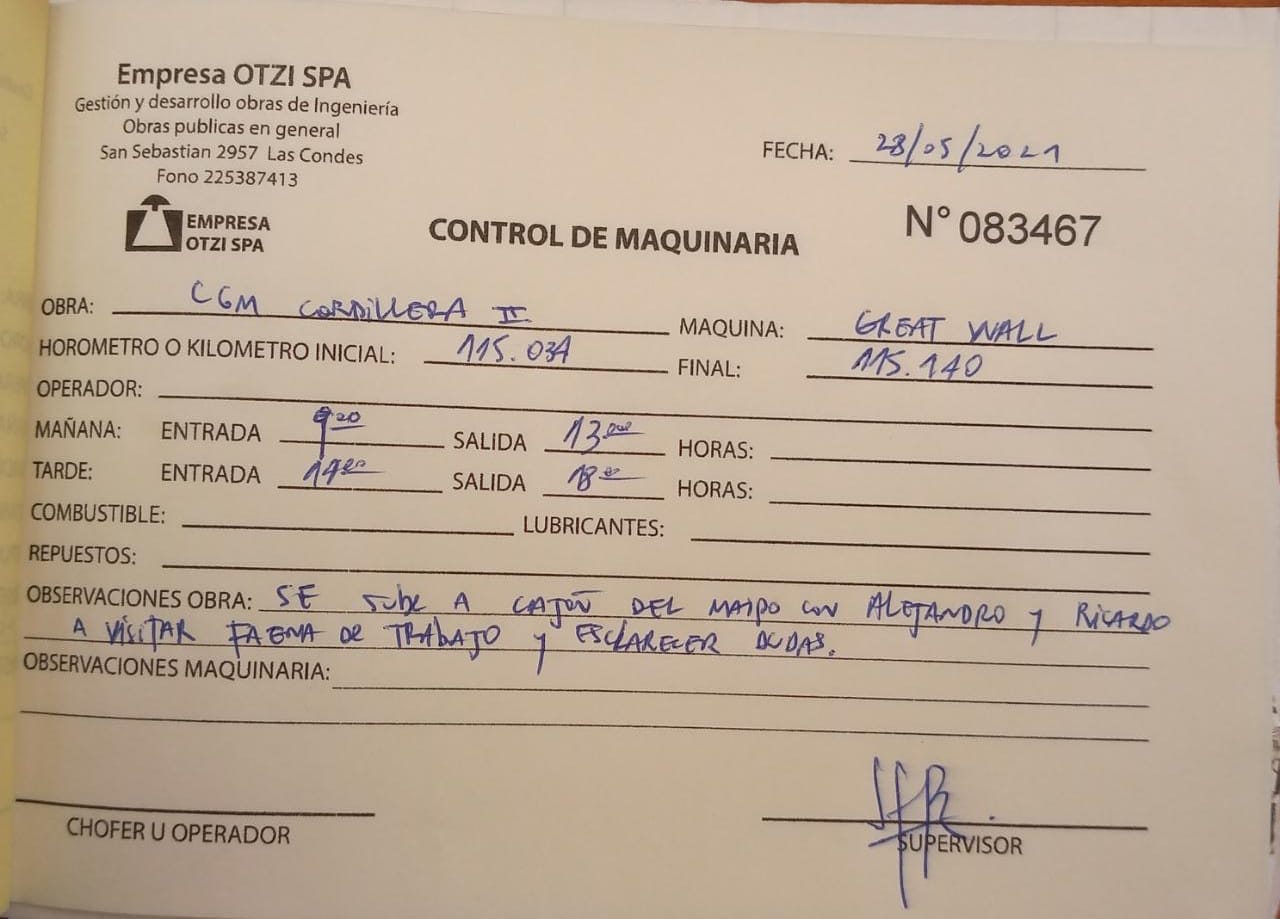 Empresa OTZI SPA
Gestión y desarrollo obras de Ingeniería
Obras publicas en general
San Sebastian 2957 Las Condes
Fono 225387413
EMPRESA
OTZI SPA
FECHA: 28/05/2021
CONTROL DE MAQUINARIA
N° 083467
OBRA: CGM CORDILLERA II MAQUINA: GREAT WALL
HOROMETRO O KILOMETRO INICIAL: 115.034 FINAL: 115.140
OPERADOR:
MAÑANA: ENTRADA 9 SALIDA 13 HORAS:
TARDE: ENTRADA SALIDA 18 HORAS:
COMBUSTIBLE: LUBRICANTES:
REPUESTOS:
OBSERVACIONES OBRA: SE SUBE A CAJON DEL MAIPO CON ALEJANDRO y RICARDO
A VISITAR FAENA DE TRABAJO y ESCLARECER DUDAS.
OBSERVACIONES MAQUINARIA:
CHOFER U OPERADOR
SUPERVISOR